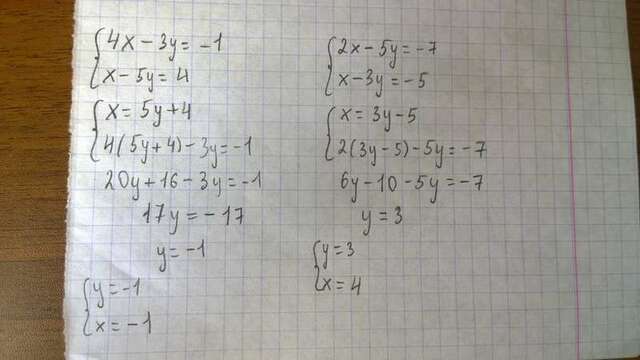 4x - 3y = -1
x - 5y = 4
x = 5y + 4
4(5y + 4) - 3y = -1
20y + 16 - 3y = -1
17y = -17
y = -1
y = -1
x = -1
2x - 5y = -7
x - 3y = -5
x = 3y - 5
2(3y - 5) - 5y = -7
6y - 10 - 5y = -7
y = 3
y = 3
x = 4